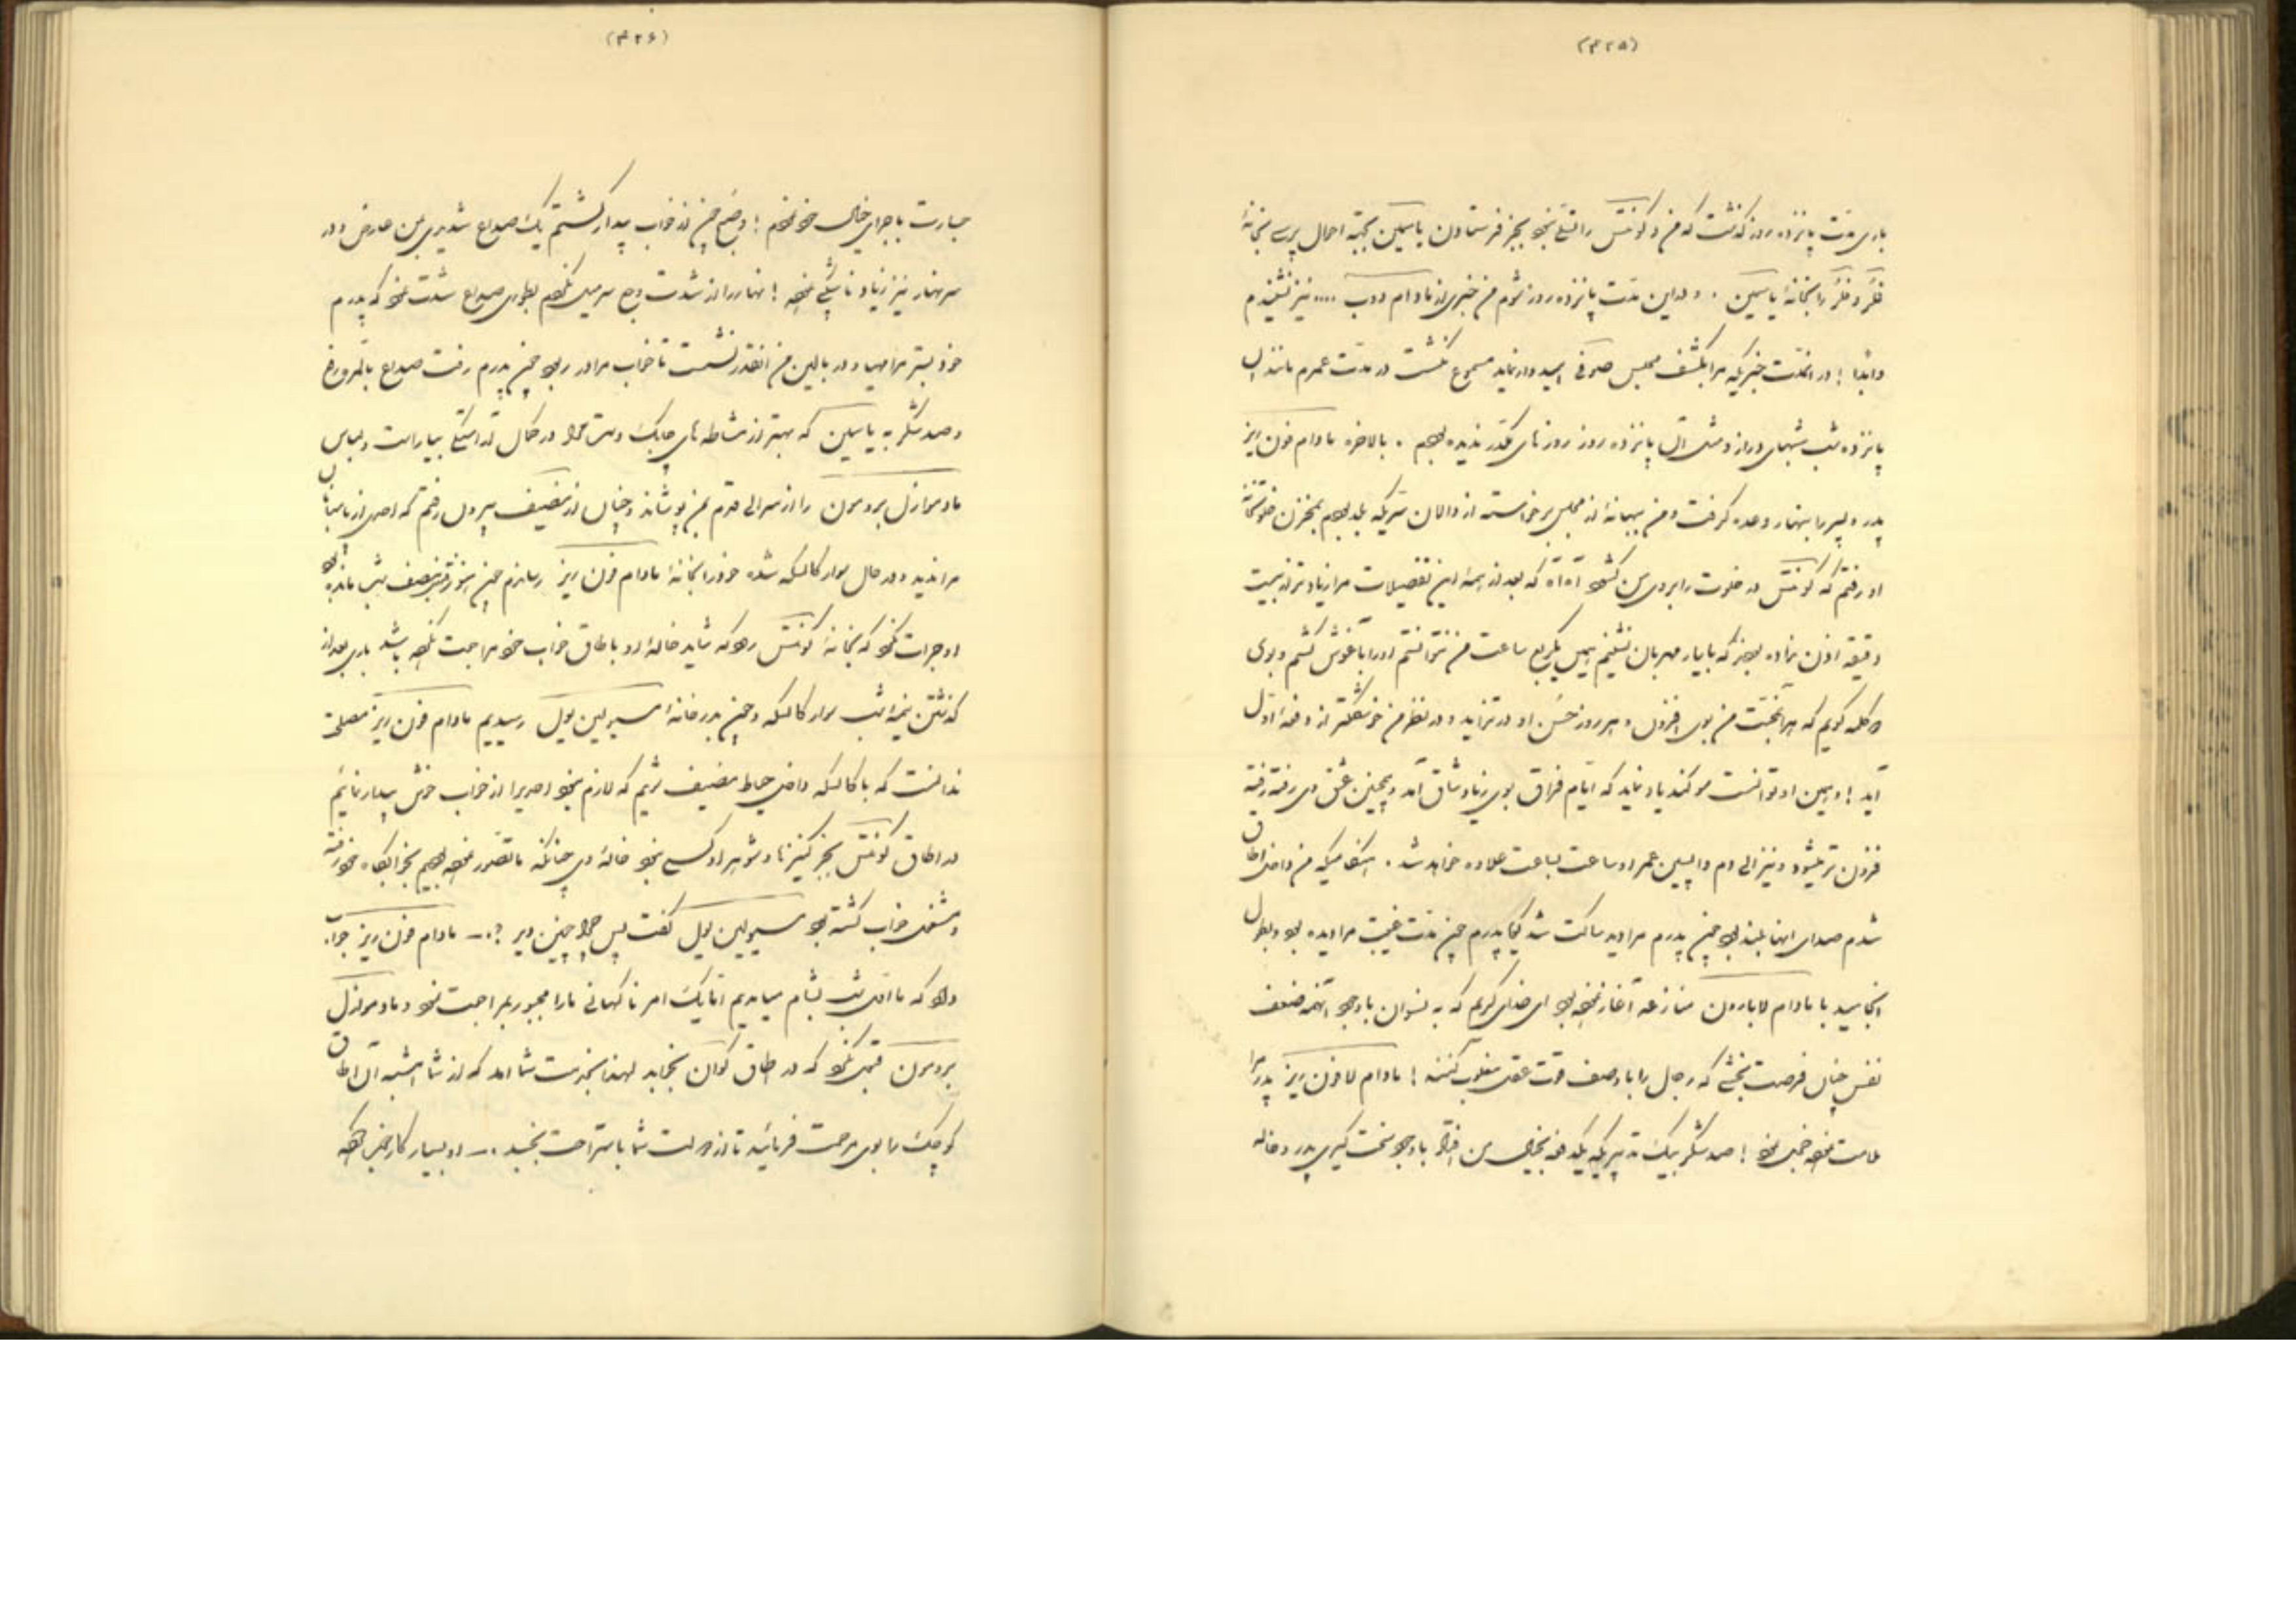 (۳۲۵)
باری مدت پانزده روز گذشت که من و کونتس را تسلی نبود بجز فرستادن یاسمین بجهة احوال پرسی بخانهٔ
فکر و فکر را بخانهٔ یاسمین . و در این مدت پانزده روز شوم من خبری از مادام دوب .... نیز نشنیدم
و ابداً ! در آنمدت خبریکه مرا بکشف مجلس صوفی امیدوار نماید مسموع نگشت در مدت عمرم مانند آن
پانزده شب شبهای دراز و مثل آن پانزده روز روزهای مکدر ندیده بودم . بالاخره مادام فون ریز
پدر و پسر را بنهار وعده گرفت و من ببهانهٔ از مجلس برخاسته از دالان سریکه بلد بودم بمخزن خلوتخانهٔ
او رفتم که کونتس در خلوت را بروی من گشود آه آه که بعد از همهٔ این تفصیلات مرا زیادتر از بیست
دقیقه اذن نداده بودند که با یار مهربان نشینم پس یکربع ساعت من نتوانستم او را بآغوش کشم و بوی
کلمه گویم که هر آنچه محبت من بوی افزون و هر روز حسن او در تزاید و در نظر من خوشگلتر از دفعهٔ اول
آید ! و بمن او توانست سوگند یاد نماید که ایام فراق بوی زیاد شاق آمد و همچنین عشق وی رفته رفته
فزون تر میشود و نیز الی دم واپسین عمر او ساعت بساعت علاوه خواهد شد . هنگامیکه من داخل اطاق
شدم صدای آنها بلند بود چون پدرم مرا دید ساکت شد گویا پدرم چون مدت غیبت مرا دیده بود و بطول
انجامید با مادام لابارون منازعه آغاز نموده بود ای خدای کریم که به نسوان با وجود آنهمه ضعف
نفس چنان فرصت بخشی که رجال را با وصف قوت عقل مغلوب کنند ! مادام لافون ریز پدر مرا
ملامت نموده خجل نمود ! صد شکر بیک تدبیریکه یکدفعه بخیال من افتاد با وجود سخت گیری پدر و خاله
(۳۲۶)
جسارت باجرای خیال خود نمودم ! و صبح چون از خواب بیدار گشتم یک صداع شدیدی بمن عارض و در
سر نهار نیز زیاد ناشکیبی نموده ! نهار را از شدت وجع سر میل نکردم بطوری صداع شدت نمود که پدرم
خود بستر مرا مهیا و در بالین من آنقدر نشست تا خواب مرا در ربود چون پدرم رفت صداع بالمره رفع
و صد شکر به یاسمین که بهتر از مشاطه های چابک دست مرا در کمال آراستگی بیاراست و لباس
مادموازل بردسون را از سر الی قدم بمن پوشاند و چنان از مضیف بیرون رفتم که احدی از پاسبانان
مرا ندید و در حال سوار کالسکه شده خود را بخانهٔ مادام فون ریز رساندم چون هنوز قریب نصف شب مانده بود
او جرات نکرد که بخانهٔ کونتس رود که شاید خالهٔ او باطاق خواب خود مراجعت نکرده باشد باری بعد از
گذشتن نیمهٔ شب سوار کالسکه و چون بدر خانهٔ مسیو لین بول رسیدیم مادام فون ریز مصلحت
ندانست که با کالسکه داخل حیاط مضیف شویم که لازم نبود احدیرا از خواب خوش بیدار نمائیم
در اطاق کونتس بجز کنیز ما و شوهر او کسی نبود خالهٔ وی چنانکه ما تصور نموده بودیم بخوابگاه خود رفته
و مشغول خواب گشته بود مسیو لین بول گفت پس چرا چنین دیر ؟.– مادام فون ریز جواب
داد که ما اول شب بشام میامدیم اما یک امر ناگهانی ما را مجبور بمراجعت نمود و مادموازل
بردسون قبول نکرد که در اطاق کوآن بخوابد لهذا بخدمت شما آمد که از شما امشب آن اطاق
کوچک را بوی مرحمت فرمائید تا از دولت شما باستراحت بخسبد .– او بسیار کار خوبی کرده